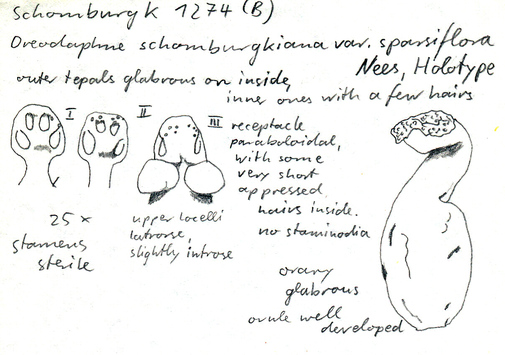 Schomburgk 1274 (B)
Oreodaphne schomburgkiana var. sparsiflora
Nees, Holotype
outer tepals glabrous on inside,
inner ones with a few hairs
I II III
receptacle
paraboloidal,
with some
very short
appressed
hairs inside.
no staminodia
25 x
stamens
sterile
upper locelli
latrorse,
slightly introse
ovary
glabrous
ovule well
developed